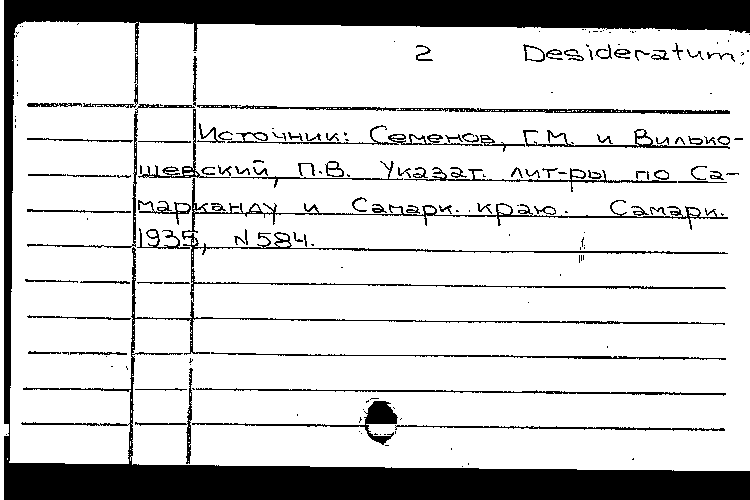 2 Desideratum:
Источник: Семенов, Г.М. и Вилько-
шевский, П.В. Указат. лит-ры по Са-
марканду и Самарк. краю. Самарк.
1935, N 584.